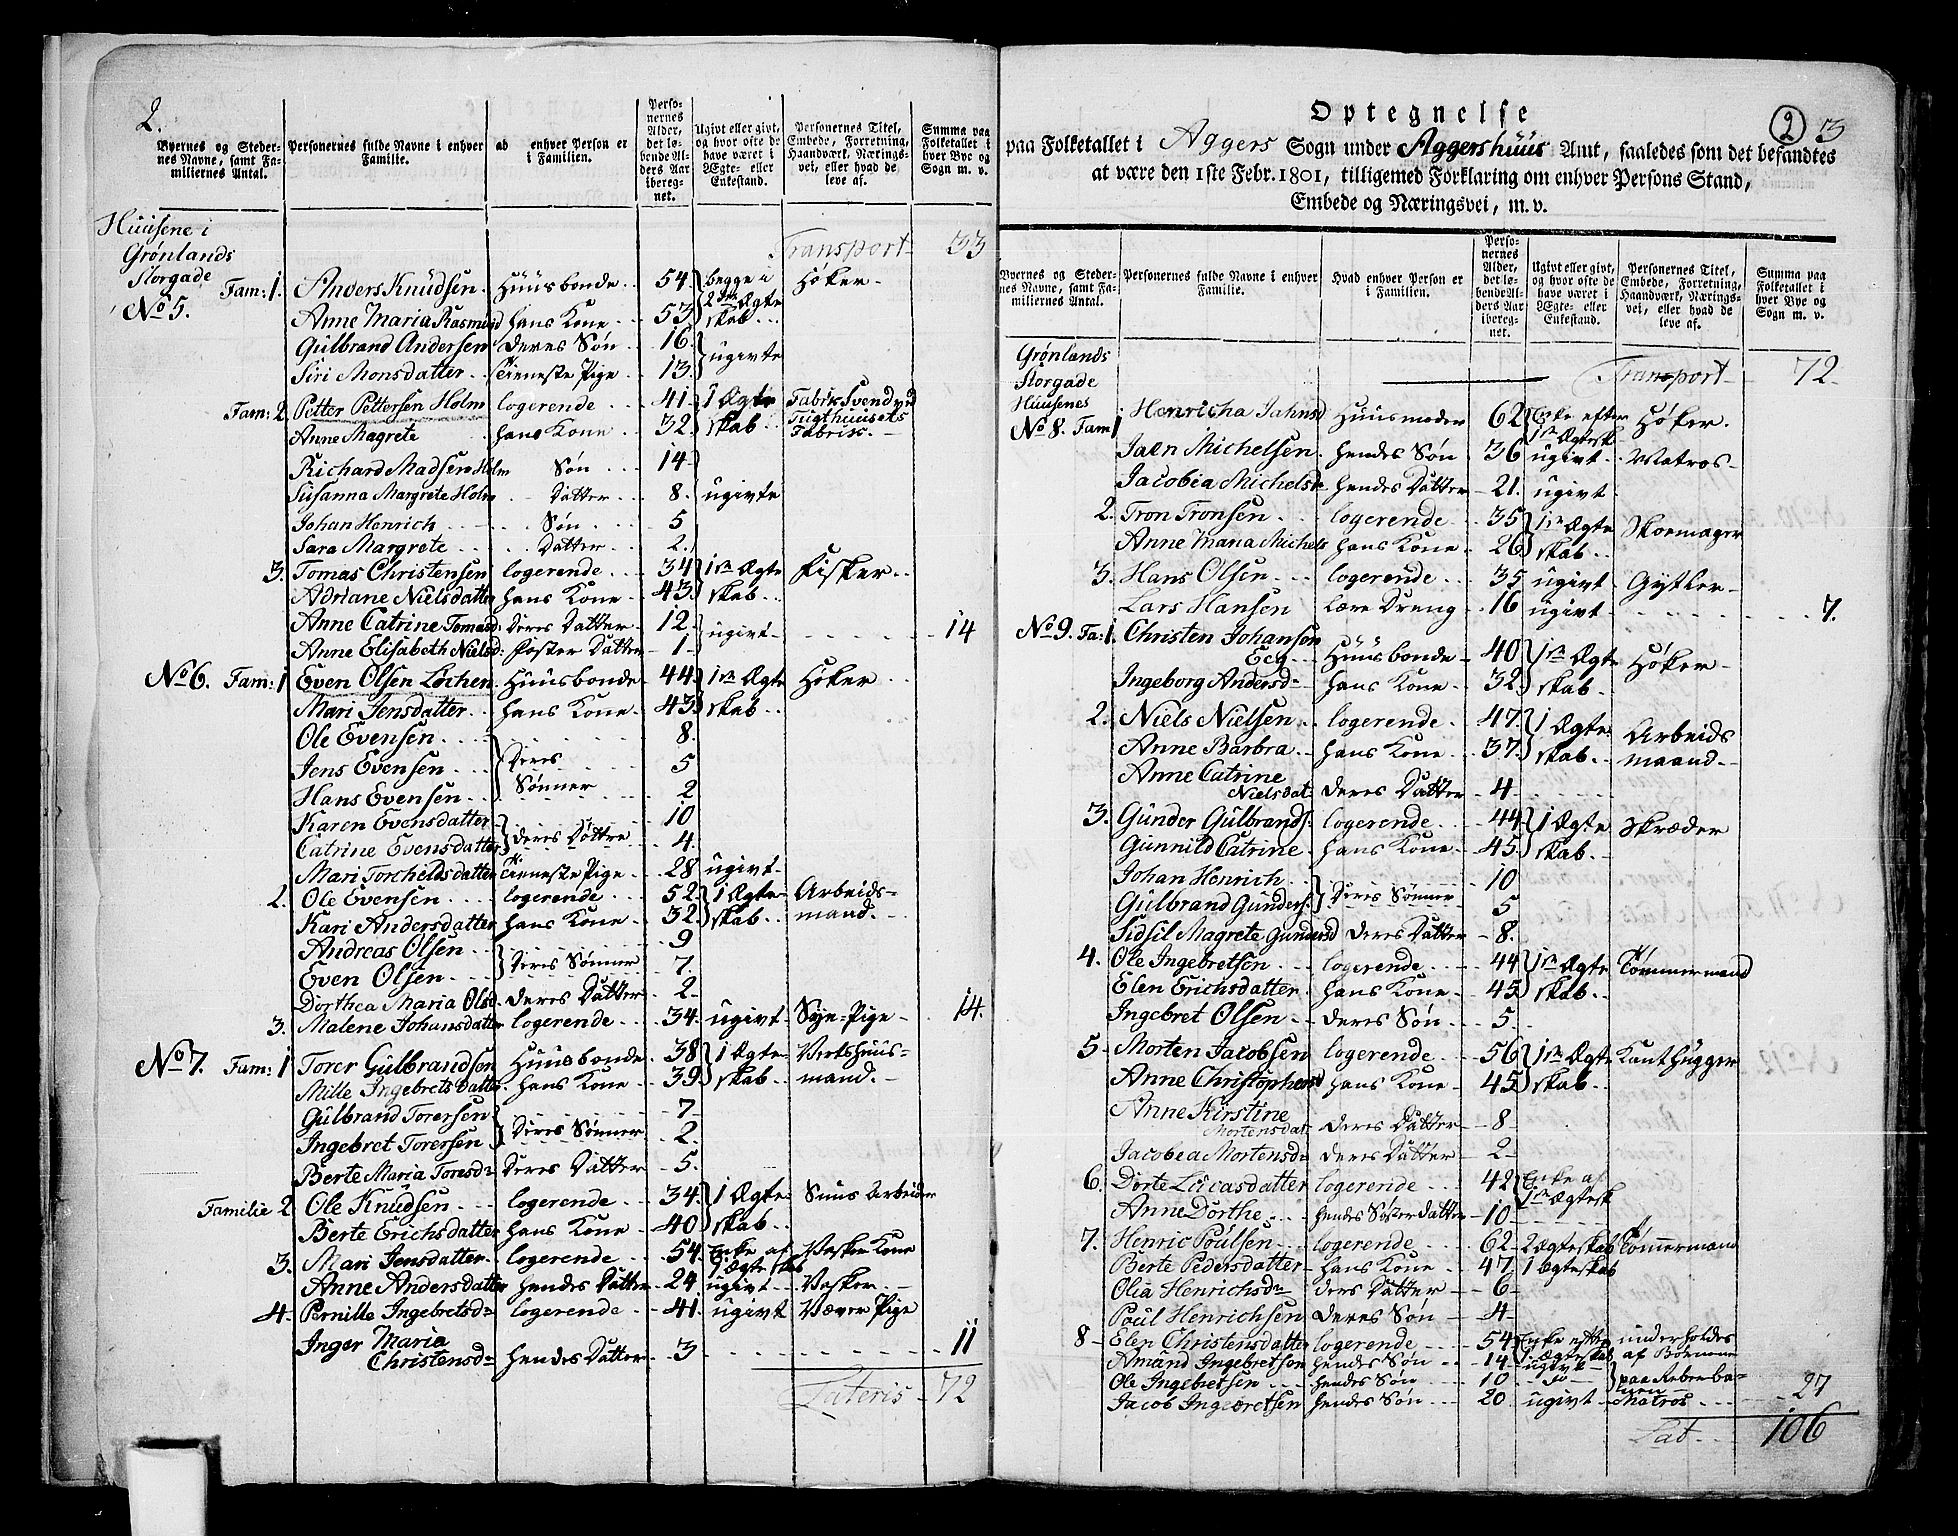 2.
Byernes og Steder-
nes Navne, samt Fa-
miliernes Antal.
Personernes fulde Navne i enhver
Familie.
ad enhver Person er
i Familien.
Perso-
nernes
Alder,
det lø-
bende Al-
ders Aar
ibereg-
net.
Ugivt eller givt,
og hvor ofte de
have været i
Ægte- eller
Enkestand.
Personernes Titel,
Embede, Forretning,
Haandværk, Nærings-
vei, eller hvad de
leve af.
Summa paa
Folketallet i
hver Bye og
Sogn m. v.
Huusene i
Grønlands
Storgade
Transport 33
No 5. Fam: 1. Anders Knudsen Huusbonde 54 begge i Høker
Anne Maria Rasmusd hans Kone 53 2det Ægte skab
Gulbrand Andersen deres Søn 16 ugivte
Siri Monsdatter Tieneste Pige 13
Fam: 2 Petter Pettersen Holm logerende 41 1 Ægte Fabrik Svend ved
Anne Magrete hans Kone 32 skab Tugthuusets Fabrik
Richard Madsen Holm Søn 14
Susanna Margrete Holm Datter 8 ugivte
Johan Henrich Søn 5
Sara Margrete Datter 2
3. Tomas Christensen logerende 34 1ste Ægte Fisker
Adriane Nielsdatter hans Kone 43 skab
Anne Catrine Tomasd: Deres Datter 12 ugivt 14
Anne Elisabeth Nielsd: Foster Datter 1
No 6. Fam: 1 Even Olsen Løchen Huusbonde 44 1ste Ægte Høker
Mari Jensdatter hans Kone 43 skab
Ole Evensen Deres 8
Jens Evensen Sønner 5
Hans Evensen 2
Karen Evensdatter deres Døttre 10
Catrine Evensdatter 4
Mari Torchelsdatter Tieneste Pige 28 ugivt
2. Ole Evensen logerende 52 1 Ægte Arbeids-
Kari Andersdatter hans Kone 32 skab mand
Andreas Olsen Deres Sønner 9
Even Olsen 7
Dorthea Maria Olsd deres Datter 2
3. Malene Johansdatter logerende 34 ugivt Sye-Pige 14
No 7. Fam: 1 Torer Gulbrandsen Huusbonde 38 1 Ægte Vertshuus-
Mille Ingebretsdatter hans Kone 39 skab mand
Gulbrand Torersen Deres Sønner 7
Ingebret Torersen 2
Berte Maria Toresdr Deres Datter 5
Familie 2 Ole Knudsen logerende 34 1 Ægte Smus Arbeider
Berte Erichsdatter hans Kone 40 skab
3. Mari Jensdatter logerende 54 Enke af 1 Ægteskab Vasker Kone
Anne Andersdatter hendes Datter 24 ugivt Vasker
4. Pernille Ingebretsdr logerende 41 ugivt Væver Pige
Inger Maria
Christensdr hendes Datter 3 11
Lateris 72
2 3
Optegnelse
paa Folketallet i Aggers Sogn under Aggershuus Amt, saaledes som det befandtes
at være den 1ste Febr. 1801, tilligemed Forklaring om enhver Persons Stand,
Embede og Næringsvei, m. v.
Byernes og Steder-
nes Navne, samt Fa-
miliernes Antal.
Personernes fulde Navne i enhver
Familie.
Hvad enhver Person er
i Familien.
Perso-
nernes
Alder,
det lø-
bende Al-
ders Aar
ibereg-
net.
Ugivt eller givt,
og hvor ofte de
have været i
Ægte- eller
Enkestand.
Personernes Titel,
Embede, Forretning,
Haandværk, Nærings-
vei, eller hvad de
leve af.
Summa paa
Folketallet i
hver Bye og
Sogn m. v.
Grønlands
Storgade
Huusenes
Transport 72
No 8. Fam 1 Henricha Jahnsd Huusmoder 62 Enke efter 1ste Ægtesk Høker
Jaen Michelsen hendes Søn 36 ugivt Matros
Jacobia Michelsdr hendes Datter 21 ugivt
2. Tron Tronsen logerende 35 1ste Ægte Skoemager
Anne Maria Michels hans Kone 26 skab
3. Hans Olsen logerende 35 ugivt Gjytler
Lars Hansen Lære Dreng 16 ugivt 7.
No 9. Fa: 1. Christen Johansen
Eeg Huusbonde 40 1ste Ægte Høker
Ingeborg Andersdr hans Kone 32 skab
2. Niels Nielsen logerende 47 1 Ægte Arbeids
Anne Barbra hans Kone 37 skab maand
Anne Catrine
Nielsdat deres Datter 4
3. Gunder Gulbrands: logerende 44 1 Ægte Skræder
Gunnild Catrine hans Kone 45 skab
Johan Henrich Deres Sønner 10
Gulbrand Gunders: 5
Sidsil Magrete Gundersd deres Datter 8
4. Ole Ingebretsen logerende 44 1ste Ægte Tømmermand
Elen Erichsdatter hans Kone 45 skab
Ingebret Olsen deres Søn 5
5 Morten Jacobsen logerende 56 1ste Ægte Kant hugger
Anne Christophersd hans Kone 45 skab
Anne Kirstine
Mortensdat: deres Datter 8
Jacobea Mortensdr deres Datter 2
6. Dorte Lucasdatter logerende 42 Enke af 1ste Ægtesk
Anne Dorthe hendes Søster datter 10
7. Henric Poulsen logerende 62 2 Ægteskab Tømmermand
Berte Pedersdatter hans Kone 47 1 Ægteskab
Olia Henrichsdr deres Datter 6
Poul Henrichsen deres Søn 4
8 Elen Christensdatter logerende 54 Enke efter 1 Ægteskab underholdes
Amund Ingebretsen hendes Søn 14 ugivt af Børnene
Ole Ingebretsen hendes Søn 10 do paa Reberba-
Jacob Ingebretsen hendes Søn 20 ugivt Matros 27
Lat 106